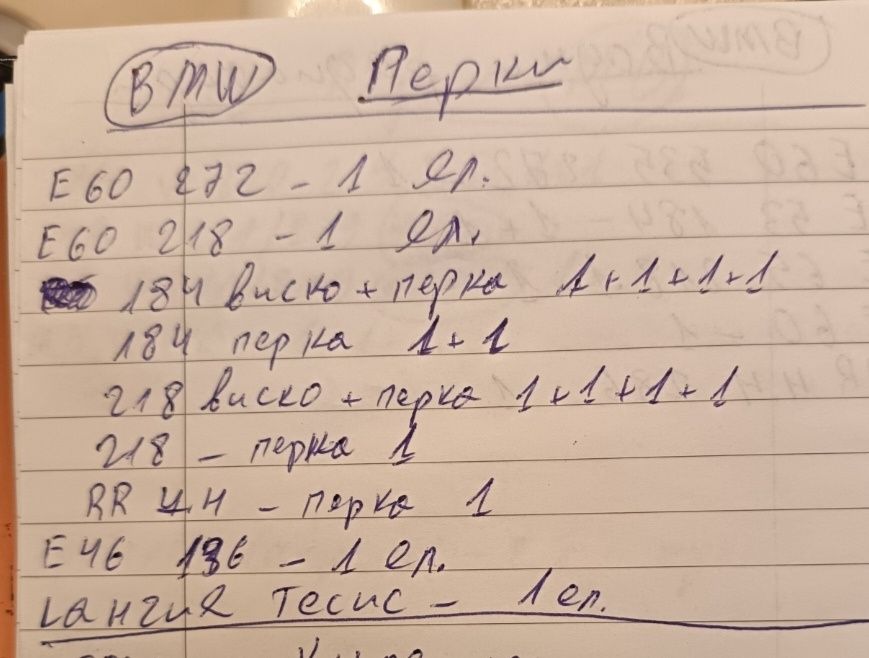 BMW Перки
E60 272 - 1 ел.
E60 218 - 1 ел.
184 виско + перка 1+1+1+1
184 перка 1+1
218 виско + перка 1+1+1+1
218 - перка 1
RR 4.4 - перка 1
E46 136 - 1 ел.
Лангия Тесис - 1 ел.